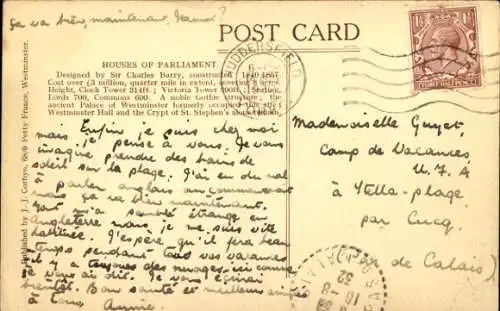 Ça va bien, maintenant, Mamie?
POST CARD
HOUSES OF PARLIAMENT.
Designed by Sir Charles Barry, constructed 1840-1857.
Cost over £3 million, quarter mile in extent, covering 8 acres
Height, Clock Tower 314ft; Victoria Tower 300ft; Seating
Lords 700, Commons 600. A noble Gothic structure; the
ancient Palace of Westminster formerly occupied this site;
Westminster Hall and the Crypt of St. Stephen's alone remain.
Published by J. J. Cottoyn, 68/9 Petty France, Westminster.
HUDDERSFIELD
Enfin je suis chez moi
mais je pense à vous. Je vous
imagine prendre des bains de
soleil sur la plage. J'ai eu du mal
à parler anglais au commencement
mais ça va bien maintenant.
Tout m'a semblé étrange en
Angleterre mais je me suis vite
habituée. J'espère qu'il fera beau
temps pendant vos vacances
il y a toujours des nuages ici comme
je vous ai dit. Je vous écrirai
bientôt. Bon santé et meilleures amitiés
à tous Annie.
Mademoiselle Guyet,
Camp de Vacances,
U.J.A
à Stella-plage,
par Cucq.
(Pas de Calais)